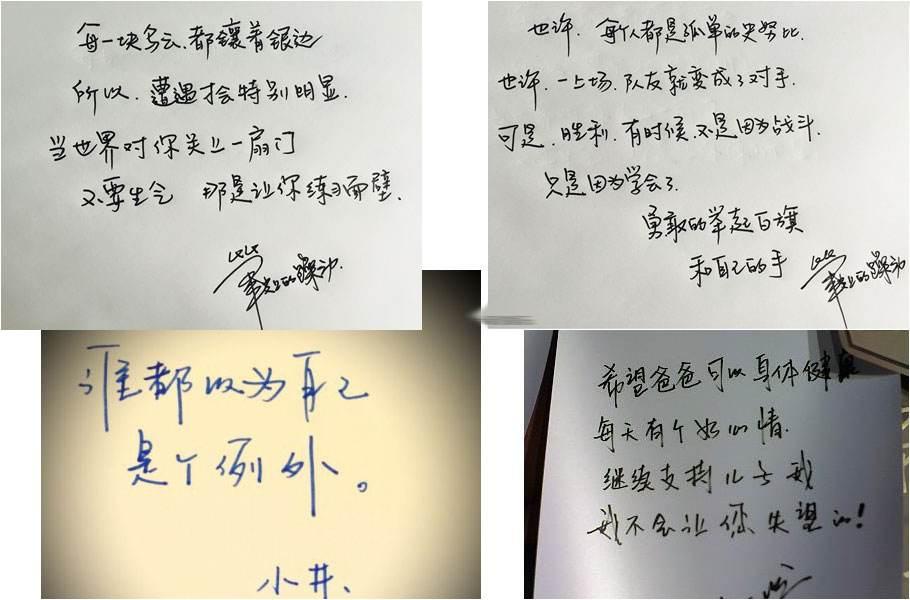 每一块乌云.都镶着银边
所以.遭遇才会特别明显.
当世界对你关上一扇门
不要生气 那是让你练习面壁.
也许.每个人都是孤单的史努比.
也许.一上场.队友就变成了对手.
可是.胜利.有时候.不是因为战斗.
只是因为学会了.
勇敢的举起白旗
和自己的手
谁都以为自己
是个例外。
小井.
希望爸爸可以身体健康
每天有个好心情.
继续支持儿子我
我不会让您失望的!